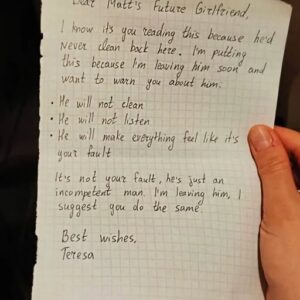 Dear Matt's Future Girlfriend,
I know it's you reading this because he'd
never clean back here. I'm putting
this because I'm leaving him soon and
want to warn you about him.
• He will not clean
• He will not listen
• He will make everything feel like it's
your fault
It's not your fault, he's just an
incompetent man. I'm leaving him, I
suggest you do the same
Best wishes,
Teresa